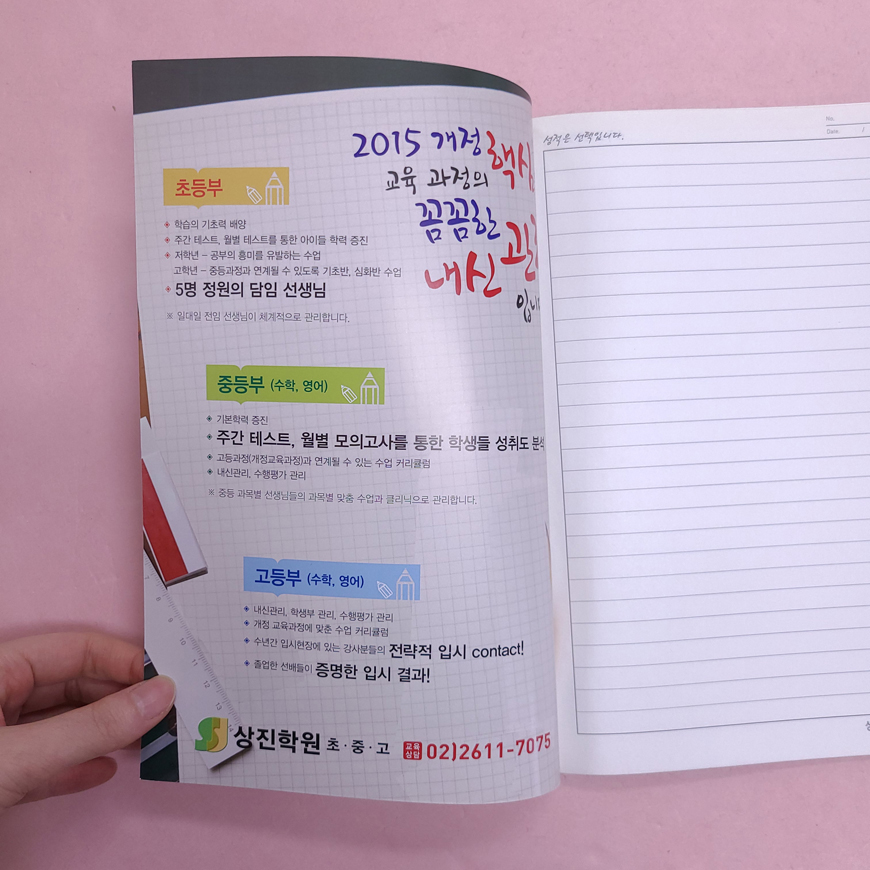 2015 개정
교육 과정의 핵심
꼼꼼한
내신
초등부
학습의 기초력 배양
주간 테스트, 월별 테스트를 통한 아이들 학력 증진
저학년 – 공부의 흥미를 유발하는 수업
고학년 – 중등과정과 연계될 수 있도록 기초반, 심화반 수업
5명 정원의 담임 선생님
※ 일대일 전임 선생님이 체계적으로 관리합니다.
중등부 (수학, 영어)
기본학력 증진
주간 테스트, 월별 모의고사를 통한 학생들 성취도 분석
고등과정(개정교육과정)과 연계될 수 있는 수업 커리큘럼
내신관리, 수행평가 관리
※ 중등 과목별 선생님들의 과목별 맞춤 수업과 클리닉으로 관리합니다.
고등부 (수학, 영어)
내신관리, 학생부 관리, 수행평가 관리
개정 교육과정에 맞춘 수업 커리큘럼
수년간 입시현장에 있는 강사분들의 전략적 입시 contact!
졸업한 선배들이 증명한 입시 결과!
8
9
10
11
12
13
14
상진학원 초·중·고 교육상담 02)2611-7075
성적은 선택입니다.
No.
Date /